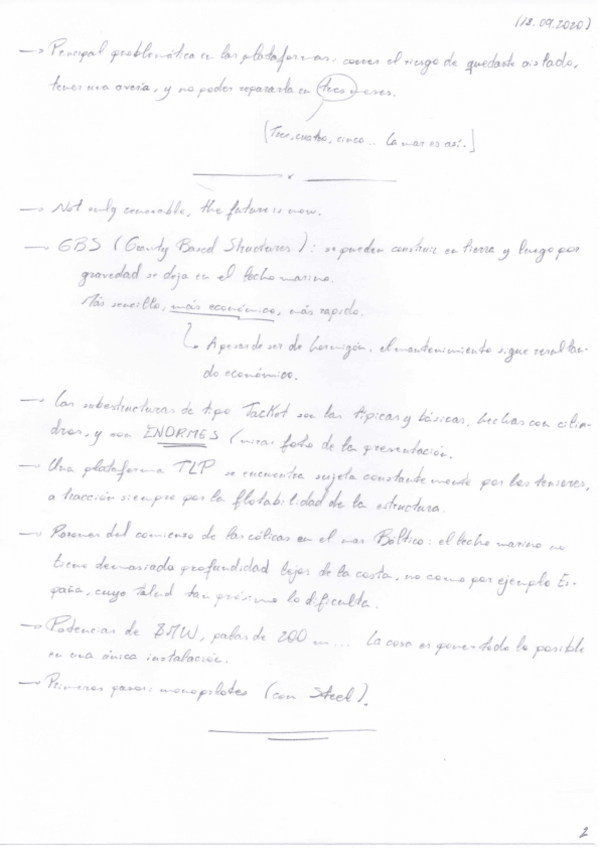 (18.09.2020)
→ Principal problemática en las plataformas: corres el riesgo de quedarte aislado,
tener una avería, y no poder repararla en tres meses.
[Tres, cuatro, cinco... La mar es así.]
→ Not only renovable, the future is now.
→ GBS (Gravity Based Structures): se pueden construir en tierra y luego por
gravedad se deja en el lecho marino.
Más sencillo, más económico, más rápido.
A pesar de ser de hormigón, el mantenimiento sigue resultan-
do económico.
→ Las subestructuras de tipo Jacket son las típicas y básicas, hechas con cilin-
dros, y son ENORMES (mirar foto de la presentación.
→ Una plataforma TLP se encuentra sujeta constantemente por los tensores,
a tracción siempre por la flotabilidad de la estructura.
→ Razones del comienzo de las eólicas en el mar Báltico: el lecho marino no
tiene demasiada profundidad lejos de la costa, no como por ejemplo Es-
paña, cuyo talud tan próximo lo dificulta.
→ Potencias de 8MW, palas de 200 m... La cosa es poner todo lo posible
en una única instalación.
→ Primeros pasos: monopilotes (con Steel).
2